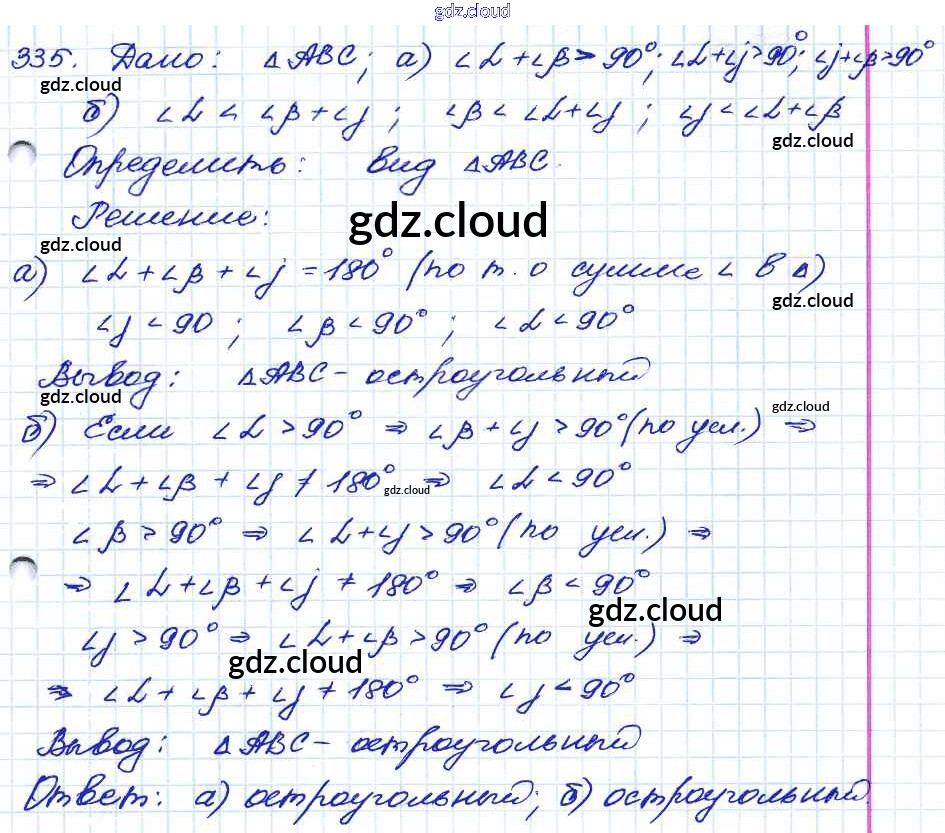 gdz.cloud
335. Дано: △ABC; а) ∠α+∠β>90°; ∠α+∠j>90°; ∠j+∠β>90°
gdz.cloud
б) ∠α < ∠β+∠j ; ∠β<∠α+∠j ; ∠j<∠α+∠β
gdz.cloud
Определить: вид △ABC.
Решение:
gdz.cloud
gdz.cloud
а) ∠α+∠β+∠j=180° (по т. о сумме ∠ в △)
gdz.cloud
∠j<90 ; ∠β<90° ; ∠α<90°
Вывод: △ABC - остроугольный
gdz.cloud
gdz.cloud
б) Если ∠α>90° ⇒ ∠β+∠j>90° (по усл.) ⇒
⇒ ∠α+∠β+∠j≠180° ⇒ ∠α<90°
gdz.cloud
∠β>90° ⇒ ∠α+∠j>90° (по усл.) ⇒
⇒ ∠α+∠β+∠j≠180° ⇒ ∠β<90°
gdz.cloud
∠j>90° ⇒ ∠α+∠β>90° (по усл.) ⇒
gdz.cloud
⇒ ∠α+∠β+∠j≠180° ⇒ ∠j<90°
Вывод: △ABC - остроугольный
Ответ: а) остроугольный; б) остроугольный.